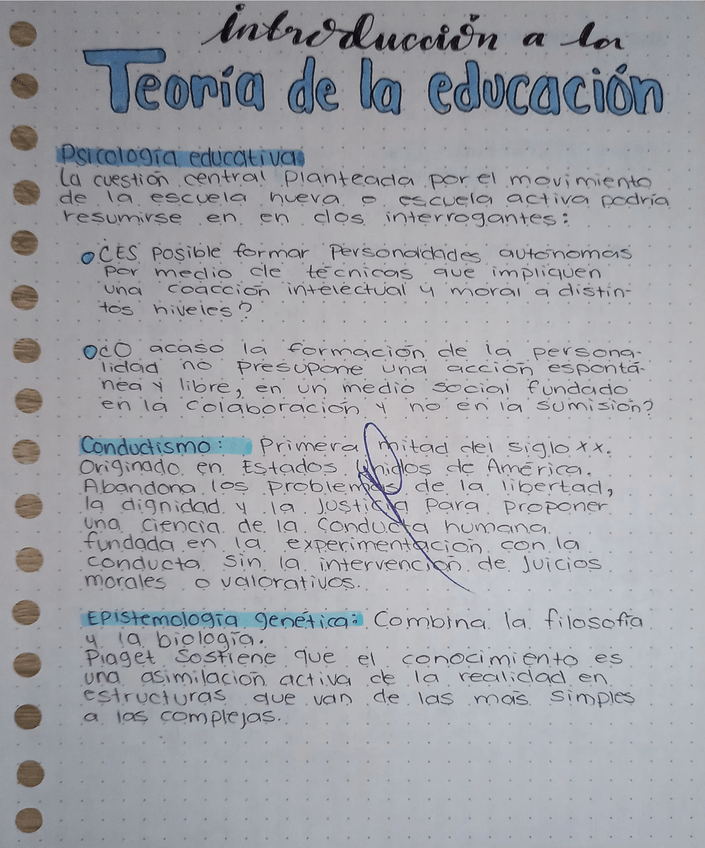 introducción a la
Teoría de la educación
Psicología educativa
La cuestión central planteada por el movimiento
de la escuela nueva o escuela activa podría
resumirse en en dos interrogantes:
¿ES posible formar personalidades autónomas
por medio de técnicas que impliquen
una coacción intelectual y moral a distin-
tos niveles?
¿O acaso la formación de la persona-
lidad no presupone una acción espontá-
nea y libre, en un medio social fundado
en la colaboración y no en la sumisión?
Conductismo: Primera mitad del siglo xx.
Originado en Estados Unidos de América.
Abandona los problemas de la libertad,
la dignidad y la justicia para proponer
una ciencia de la conducta humana
fundada en la experimentación con la
conducta sin la intervención de juicios
morales o valorativos.
Epistemología genética: Combina la filosofía
y la biología.
Piaget sostiene que el conocimiento es
una asimilación activa de la realidad en
estructuras que van de las más simples
a las complejas.